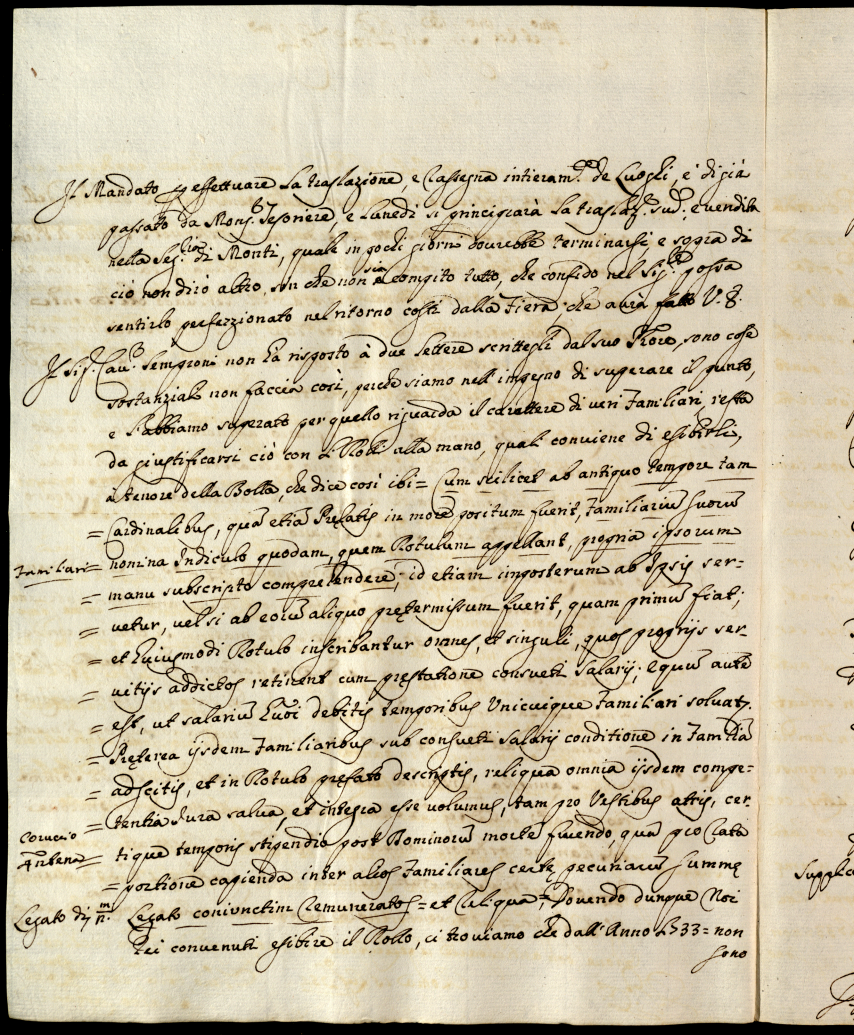 Il Mandato p effettuare la traslazione, e Rassegna intieram.te de Luoghi, è di già
passato da Mons.r Tesoriere, e Lunedi si principiarà la traslaz.e sud.a e vendita
nella Seg.ria di Monti, quale in pochi giorni dourebbe terminarsi, e sopra di
ciò non dirò altro, sin che non sia compito tutto, che confido nel Sig.re possa
sentirlo perfezzionato nel ritorno costì dalla Fiera che avrà fatto V.S.
Il Sig.r Cav.r Semproni non hà risposto à due lettere scrittegli dal suo Priore, sono cose
sostanziali non faccia così, perche siamo nell'impegno di superare il punto,
e l'abbiamo superato per quello riguarda il carattere di veri Familiari, resta
da giustificarsi ciò con li Rolli alla mano, quali conviene di esibirli,
à tenore della Bolla, che dice così ibi = Cum scilicet ab antiquo tempore tam
= Cardinalibus, quā etiā Prelatis in more positum fuerit, Familiariū suorū
Familiari = nomina Indiculo quodam, quem Rotulum appellant, propria ipsorum
= manu subscripto comprehendere; id etiam imposterum ab Ipsis ser-
= vetur, vel si ab eorū aliquo prętermissum fuerit, quam primū fiat;
= et huiusmodi Rotulo inscribantur omnes, et singuli, quos proprijs ser-
= uitijs addictos retinent cum pręstatione consueti salarij; Equū autē
= est, ut salariū huōi debitis temporibus Unicuique Familiari soluat.
= Pręterea ijsdem Familiaribus sub consueti salarij conditione in Familiā
= adscitis, et in Rotulo prefato descriptis, reliqua omnia ijsdem compe-
= tentia Jura salva, et integra esse volumus, tam pro Vestibus atris, cer
Coruccio
4ntena = tique temporis stipendio post Dominorū mortē fruendo, quā pro Rata
= portione capienda inter alios Familiares certę pecuniarū summę
Legato di 7 m/n. Legato coniunctim Remuneratos = et Reliqua = Dovendo dunque Noi
Rei convenuti esibire il Rollo, ci troviamo che dall'Anno 1733 = non
sono
Supplica